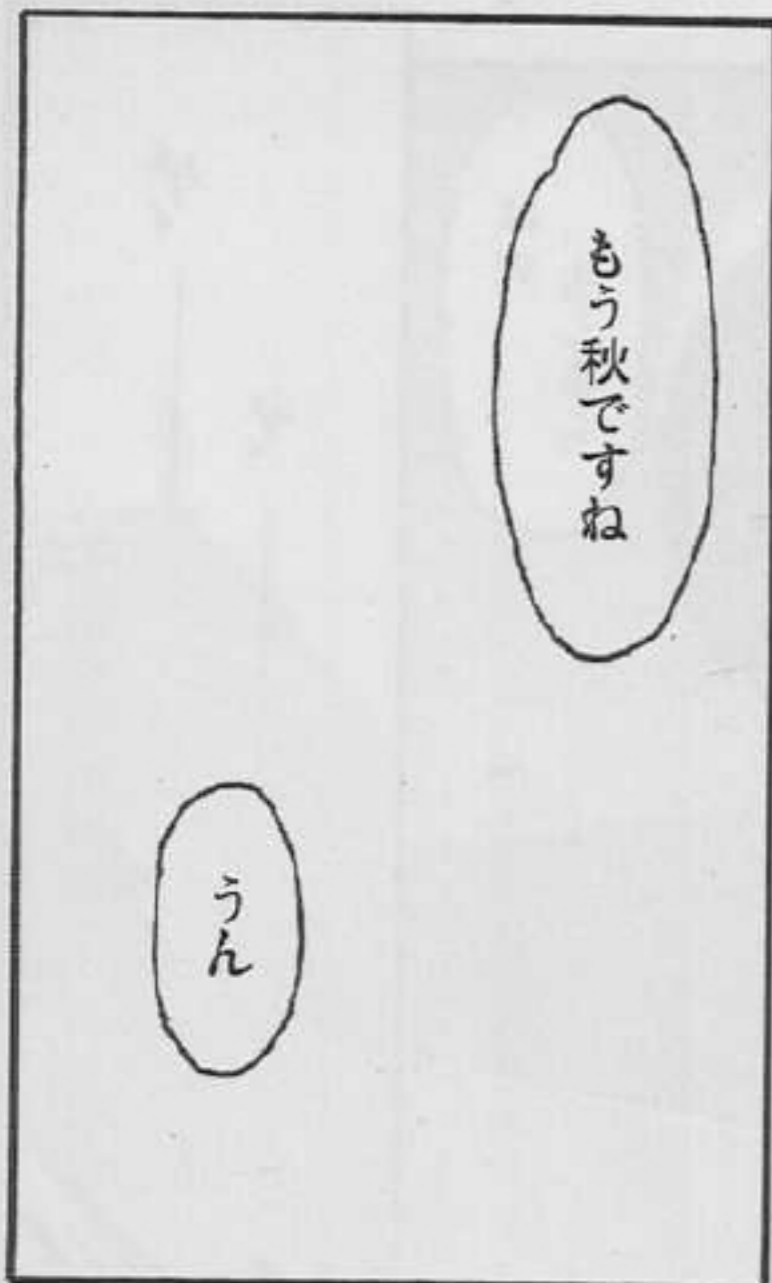 もう秋ですね
うん